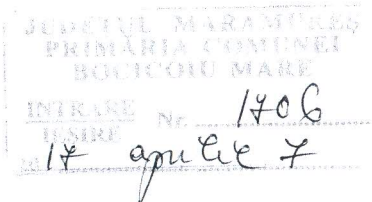 JUDEȚUL MARAMUREȘ
PRIMĂRIA COMUNEI
BOCICOIU MARE
INTRARE Nr. 1706
IEȘIRE
20 17 aprilie 7